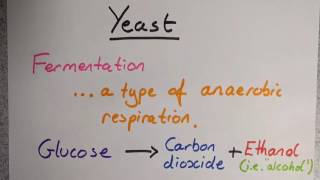 Yeast
Fermentation
... a type of anaerobic
respiration.
Glucose → Carbon dioxide + Ethanol
(i.e. 'alcohol')